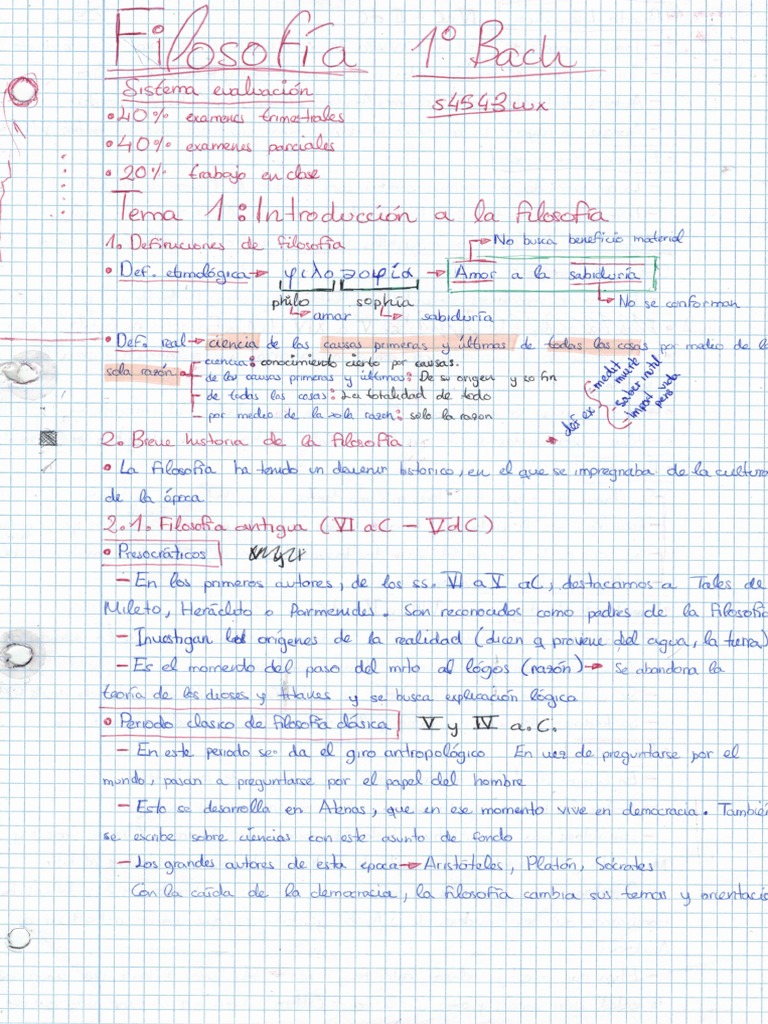 Filosofía 1º Bach
Sistema evaluación
s4543wx
• 40% examenes trimestrales
• 40% examenes parciales
• 20% trabajo en clase
Tema 1: Introducción a la filosofía
1. Definiciones de filosofía
No busca beneficio material
• Def. etimológica → φιλοσοφία → Amor a la sabiduría
philo sophía
→ amar → sabiduría
No se conforman
• Def. real → ciencia de las causas primeras y últimas de todas las cosas por medio de la
sola razón
ciencia: conocimiento cierto por causas.
de las causas primeras y últimas: De su origen y so fin
de todas las cosas: La totalidad de todo
por medio de la sola razon: solo la razon
def ex
medit muerte
saber inutil
import vida pers
2. Breve historia de la filosofía.
• La filosofía ha tenido un devenir historico, en el que se impregnaba de la cultura
de la época
2.1. Filosofía antigua (VI aC – V dC)
• Presocráticos
– En los primeros autores, de los ss. VI a V aC, destacamos a Tales de
Mileto, Heráclito o Parmenides. Son reconocidos como padres de la filosofía
– Investigan los orígenes de la realidad (dicen q proviene del agua, la tierra)
– Es el momento del paso del mito al lógos (razón) → se abandona la
teoría de los dioses y titanes y se busca explicación lógica
• Periodo clasico de filosofía clásica V y IV a.C.
– En este periodo se da el giro antropológico En vez de preguntarse por el
mundo, pasan a preguntarse por el papel del hombre
– Esto se desarrolla en Atenas, que en ese momento vive en democracia. También
se escribe sobre ciencias con este asunto de fondo
– Los grandes autores de esta epoca → Aristóteles, Platón, Sócrates
Con la caída de la democracia, la filosofía cambia sus temas y orientació